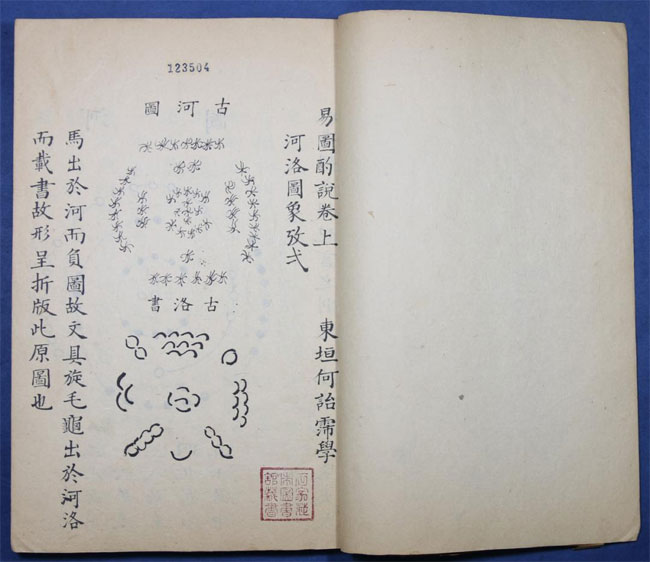 123504
易圖酌說卷上
東垣何詒霈學
河洛圖象攷弍
古河圖
古洛書
馬出於河而負圖故文具旋毛龜出於河洛
而載書故形呈折版此原圖也
石家莊
市圖書
館藏書